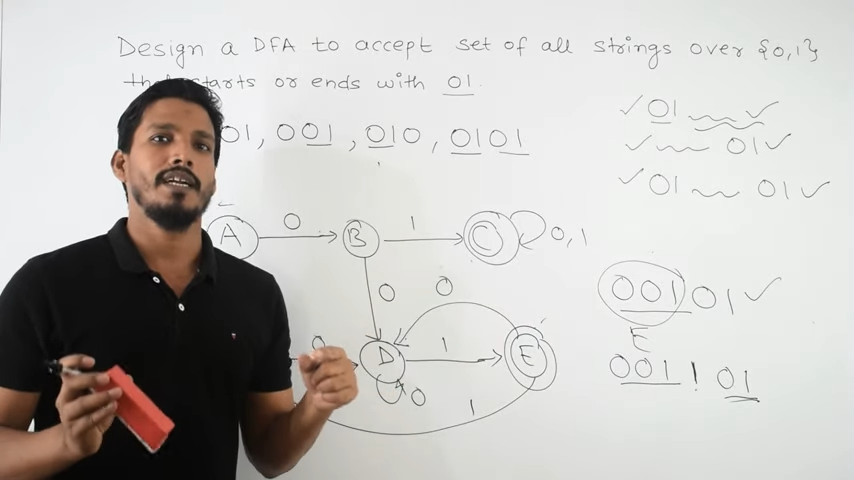 Design a DFA to accept set of all strings over {0,1}
starts or ends with 01.
01, 001, 010, 0101
01 ✓
01 ✓
01 01 ✓
A 0 B 1 C 0,1
0 0
00101 ✓
E
0 D 1 E
0 1
001 1 01